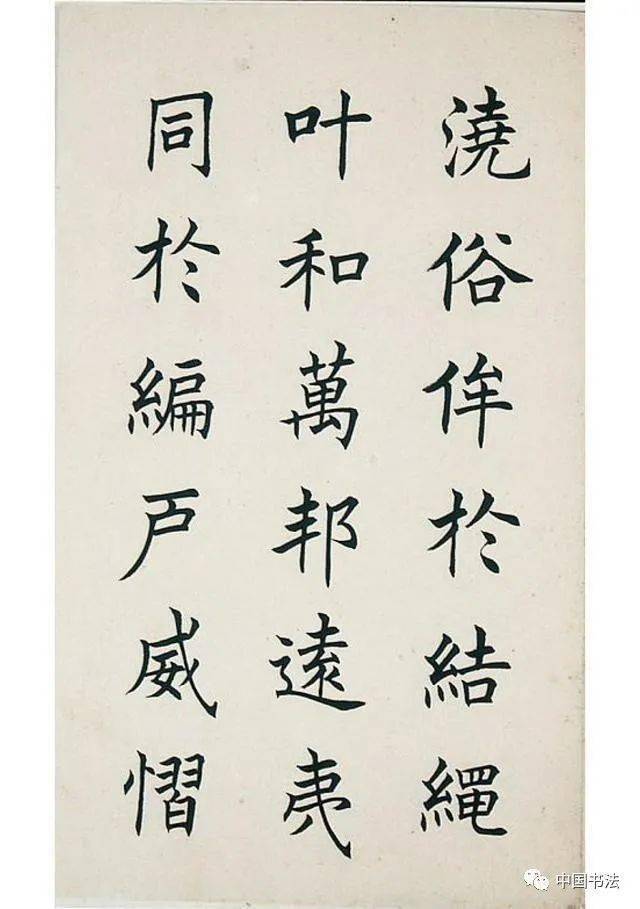 澆俗侔於結繩
叶和萬邦遠夷
同於編戸威慴
中国书法